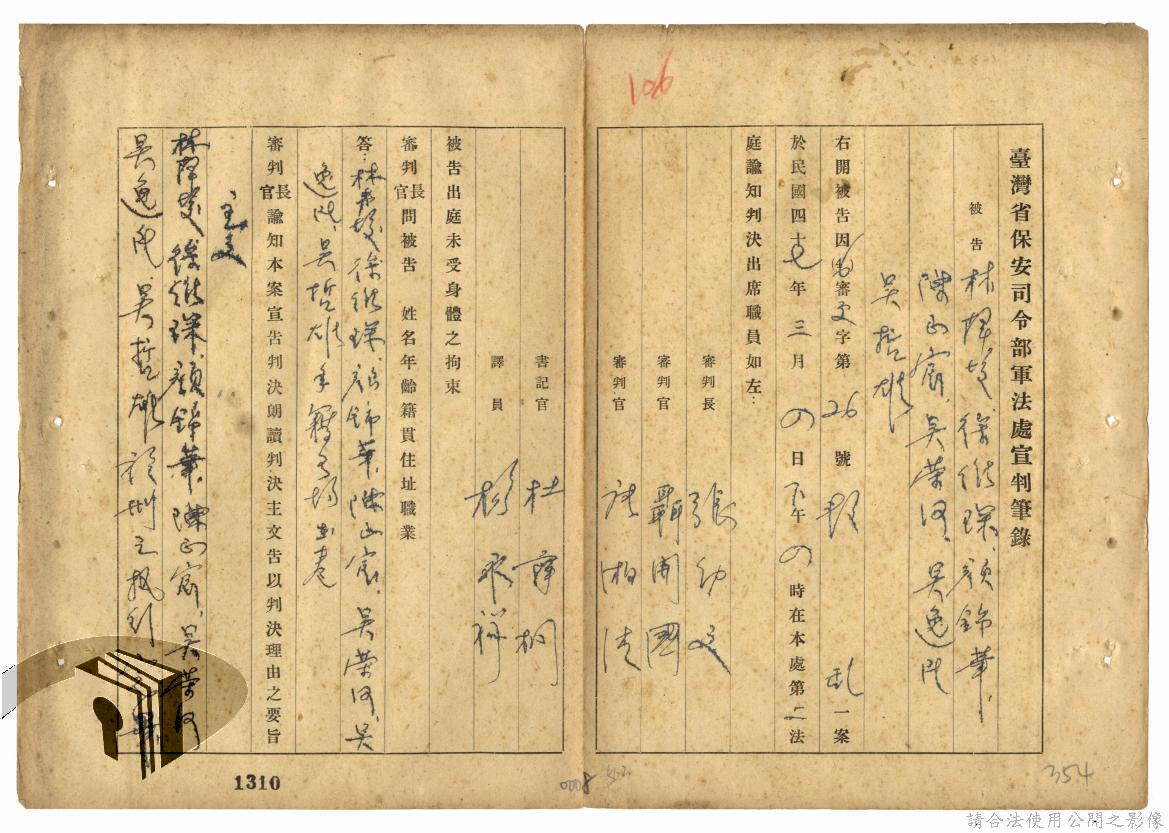 106
臺灣省保安司令部軍法處宣判筆錄
被告 林輝堎、徐繼琛、顏錦華、
陳正宸、吳榮河、吳逸民
吳哲雄
右開被告因審更字第26號叛亂一案
於民國四十七年三月の日下午の時在本處第二法
庭諭知判決出席職員如左：
審判長 張幼文
審判官 聶開國
審判官 湘清
書記官 杜
譯員 祥
被告出庭未受身體之拘束
審判長官問被告 姓名年齡籍貫住址職業
答：林 徐繼琛、顏錦華、陳正宸、吳榮河、吳
逸民、吳哲雄年籍 在卷
審判長官諭知本案宣告判決朗讀判決主文告以判決理由之要旨
主文
林 徐繼琛、顏錦華、陳正宸、吳榮河
吳逸民、吳哲雄 刑之執行
1310
0008
354
請合法使用公開之影像